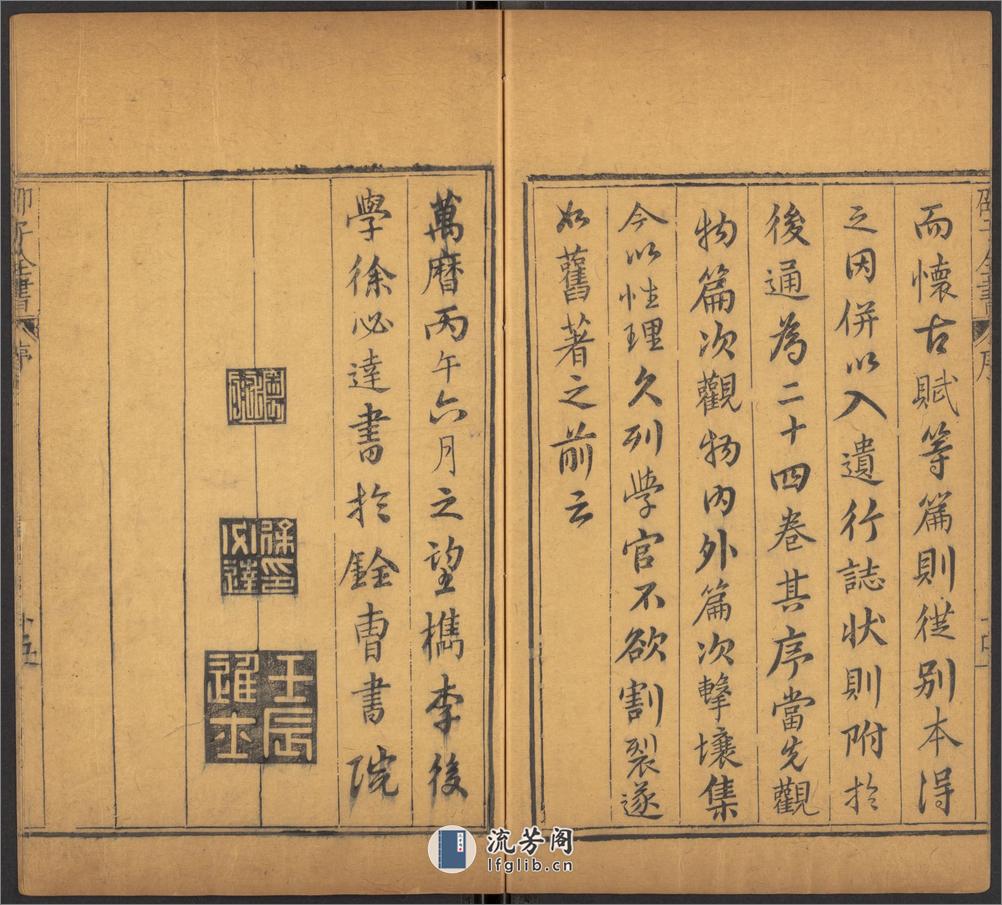 而懷古賦等篇則從别本得
之因併以入遺行誌狀則附於
後通為二十四卷其序當先觀
物篇次觀物内外篇次擊壤集
今以性理久列學官不欲割裂遂
如舊著之前云
邵子全書
序
十四
萬曆丙午六月之望檇李後
學徐必達書於銓曹書院
徐印必達
壬辰進士
邵子全書
序
十五
流芳阁
lfglib.cn